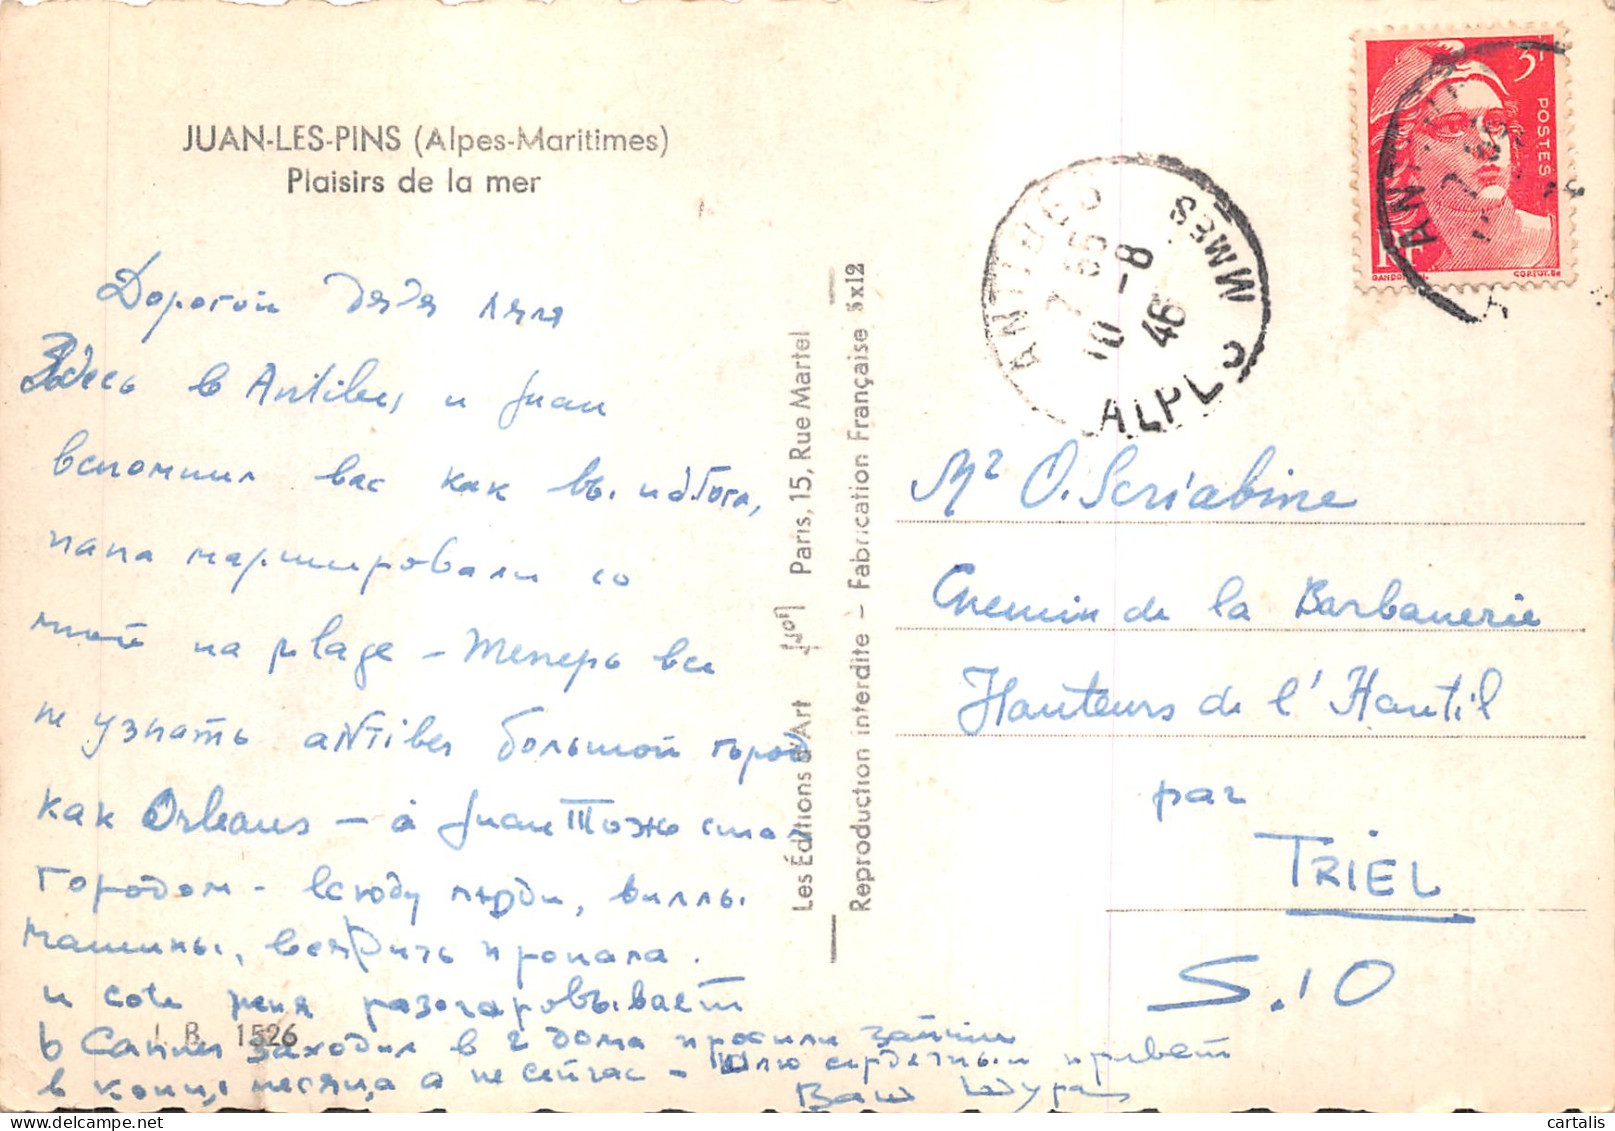 JUAN-LES-PINS (Alpes-Maritimes)
Plaisirs de la mer
Дорогой дядя Ляля
Здесь в Antibes и Juan
вспомнил вас как вы и
папа маршировали со
мной на plage – теперь вы
не узнать Antibes большой город
как Orleans – а Juan тоже стал
городом – всюду люди, виллы
машины, всякий пропала.
и cote меня разочаровывает
в Cannes заходил в 2 дома просили зайти
в конце месяца а не сейчас – Шлю сердечный привет
Ваш
I B 1526
Les Éditions d'Art Yvon Paris, 15, Rue Martel
Reproduction interdite – Fabrication Française 5x12
ANTIBES
7 55
10 - 8
46
ALPES MMES
3F
POSTES
RF
GANDON
CORTOT.Sc
ANTIBES
Mr O. Scriabine
Chemin de la Barbanerie
Hauteurs de l'Hautil
par
TRIEL
S.&O
cartalis